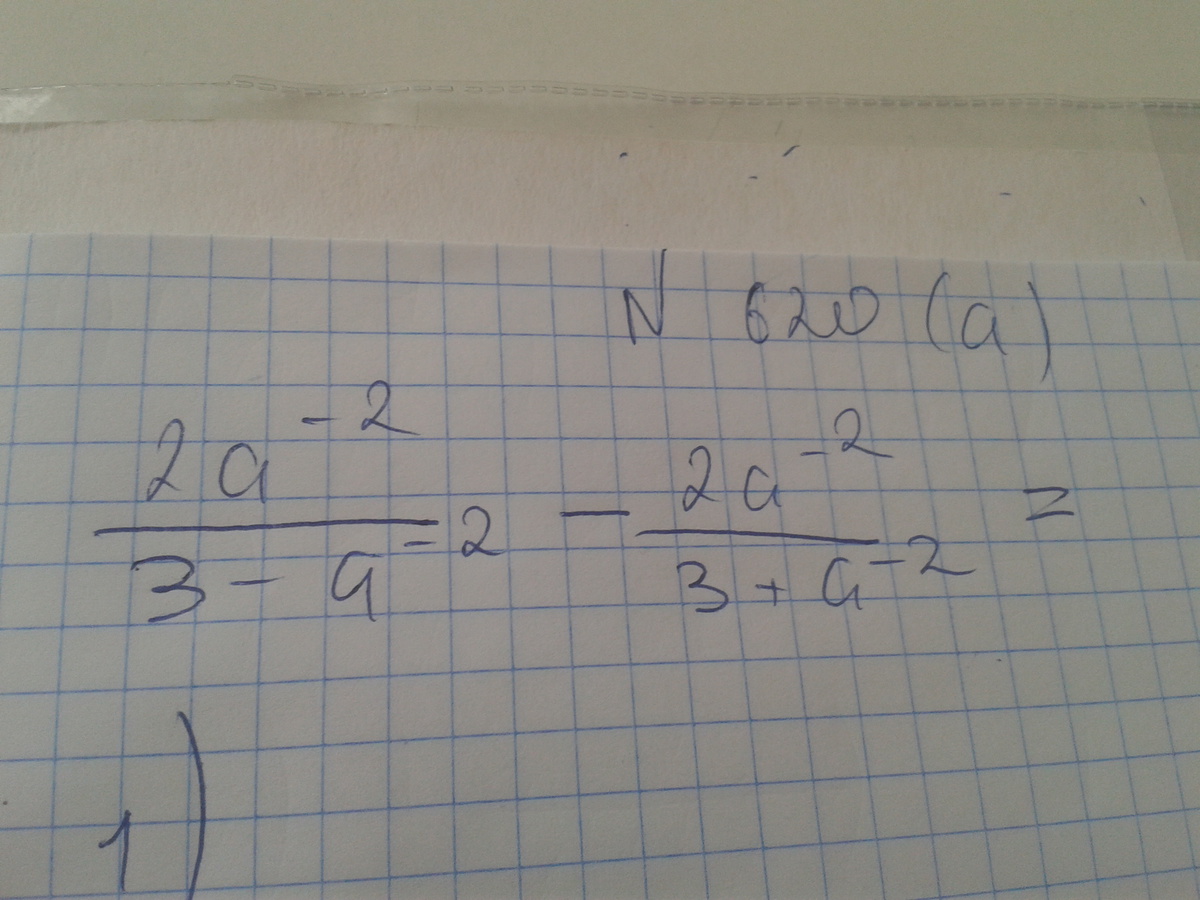 N 620 (a)
2a^-2 / 3 - a^-2 - 2a^-2 / 3 + a^-2 =
1)